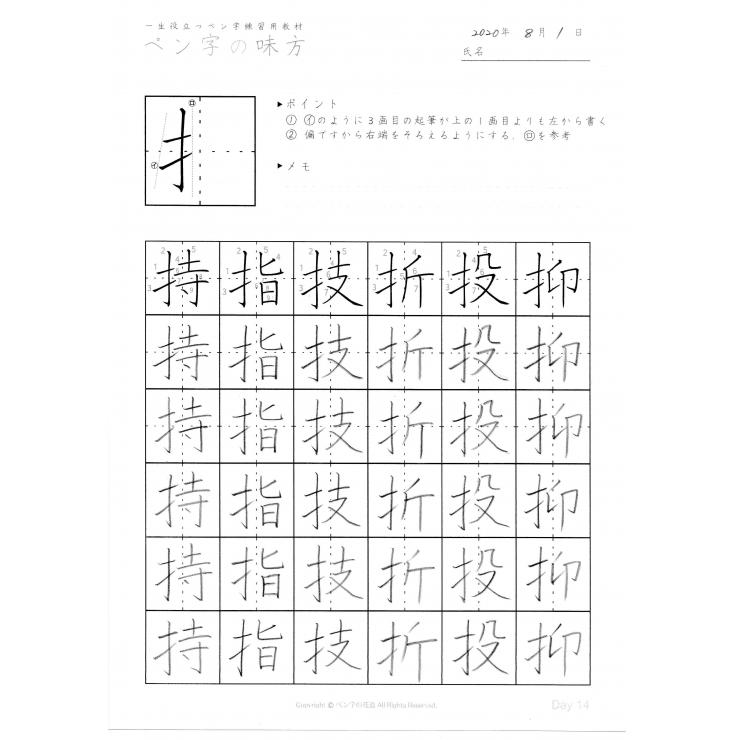 一生役立つペン字練習用教材
ペン字の味方
2020年 8月 1日
氏名
ロ
イ
▶ポイント
① ㋑のように3画目の起筆が上の1画目よりも左から書く
② 偏ですから右端をそろえるようにする。㋺を参考
▶メモ
持 指 技 折 投 抑
持 指 技 折 投 抑
持 指 技 折 投 抑
持 指 技 折 投 抑
持 指 技 折 投 抑
持 指 技 折 投 抑
Copyright © ペン字の花道 All Rights Reserved.
Day 14